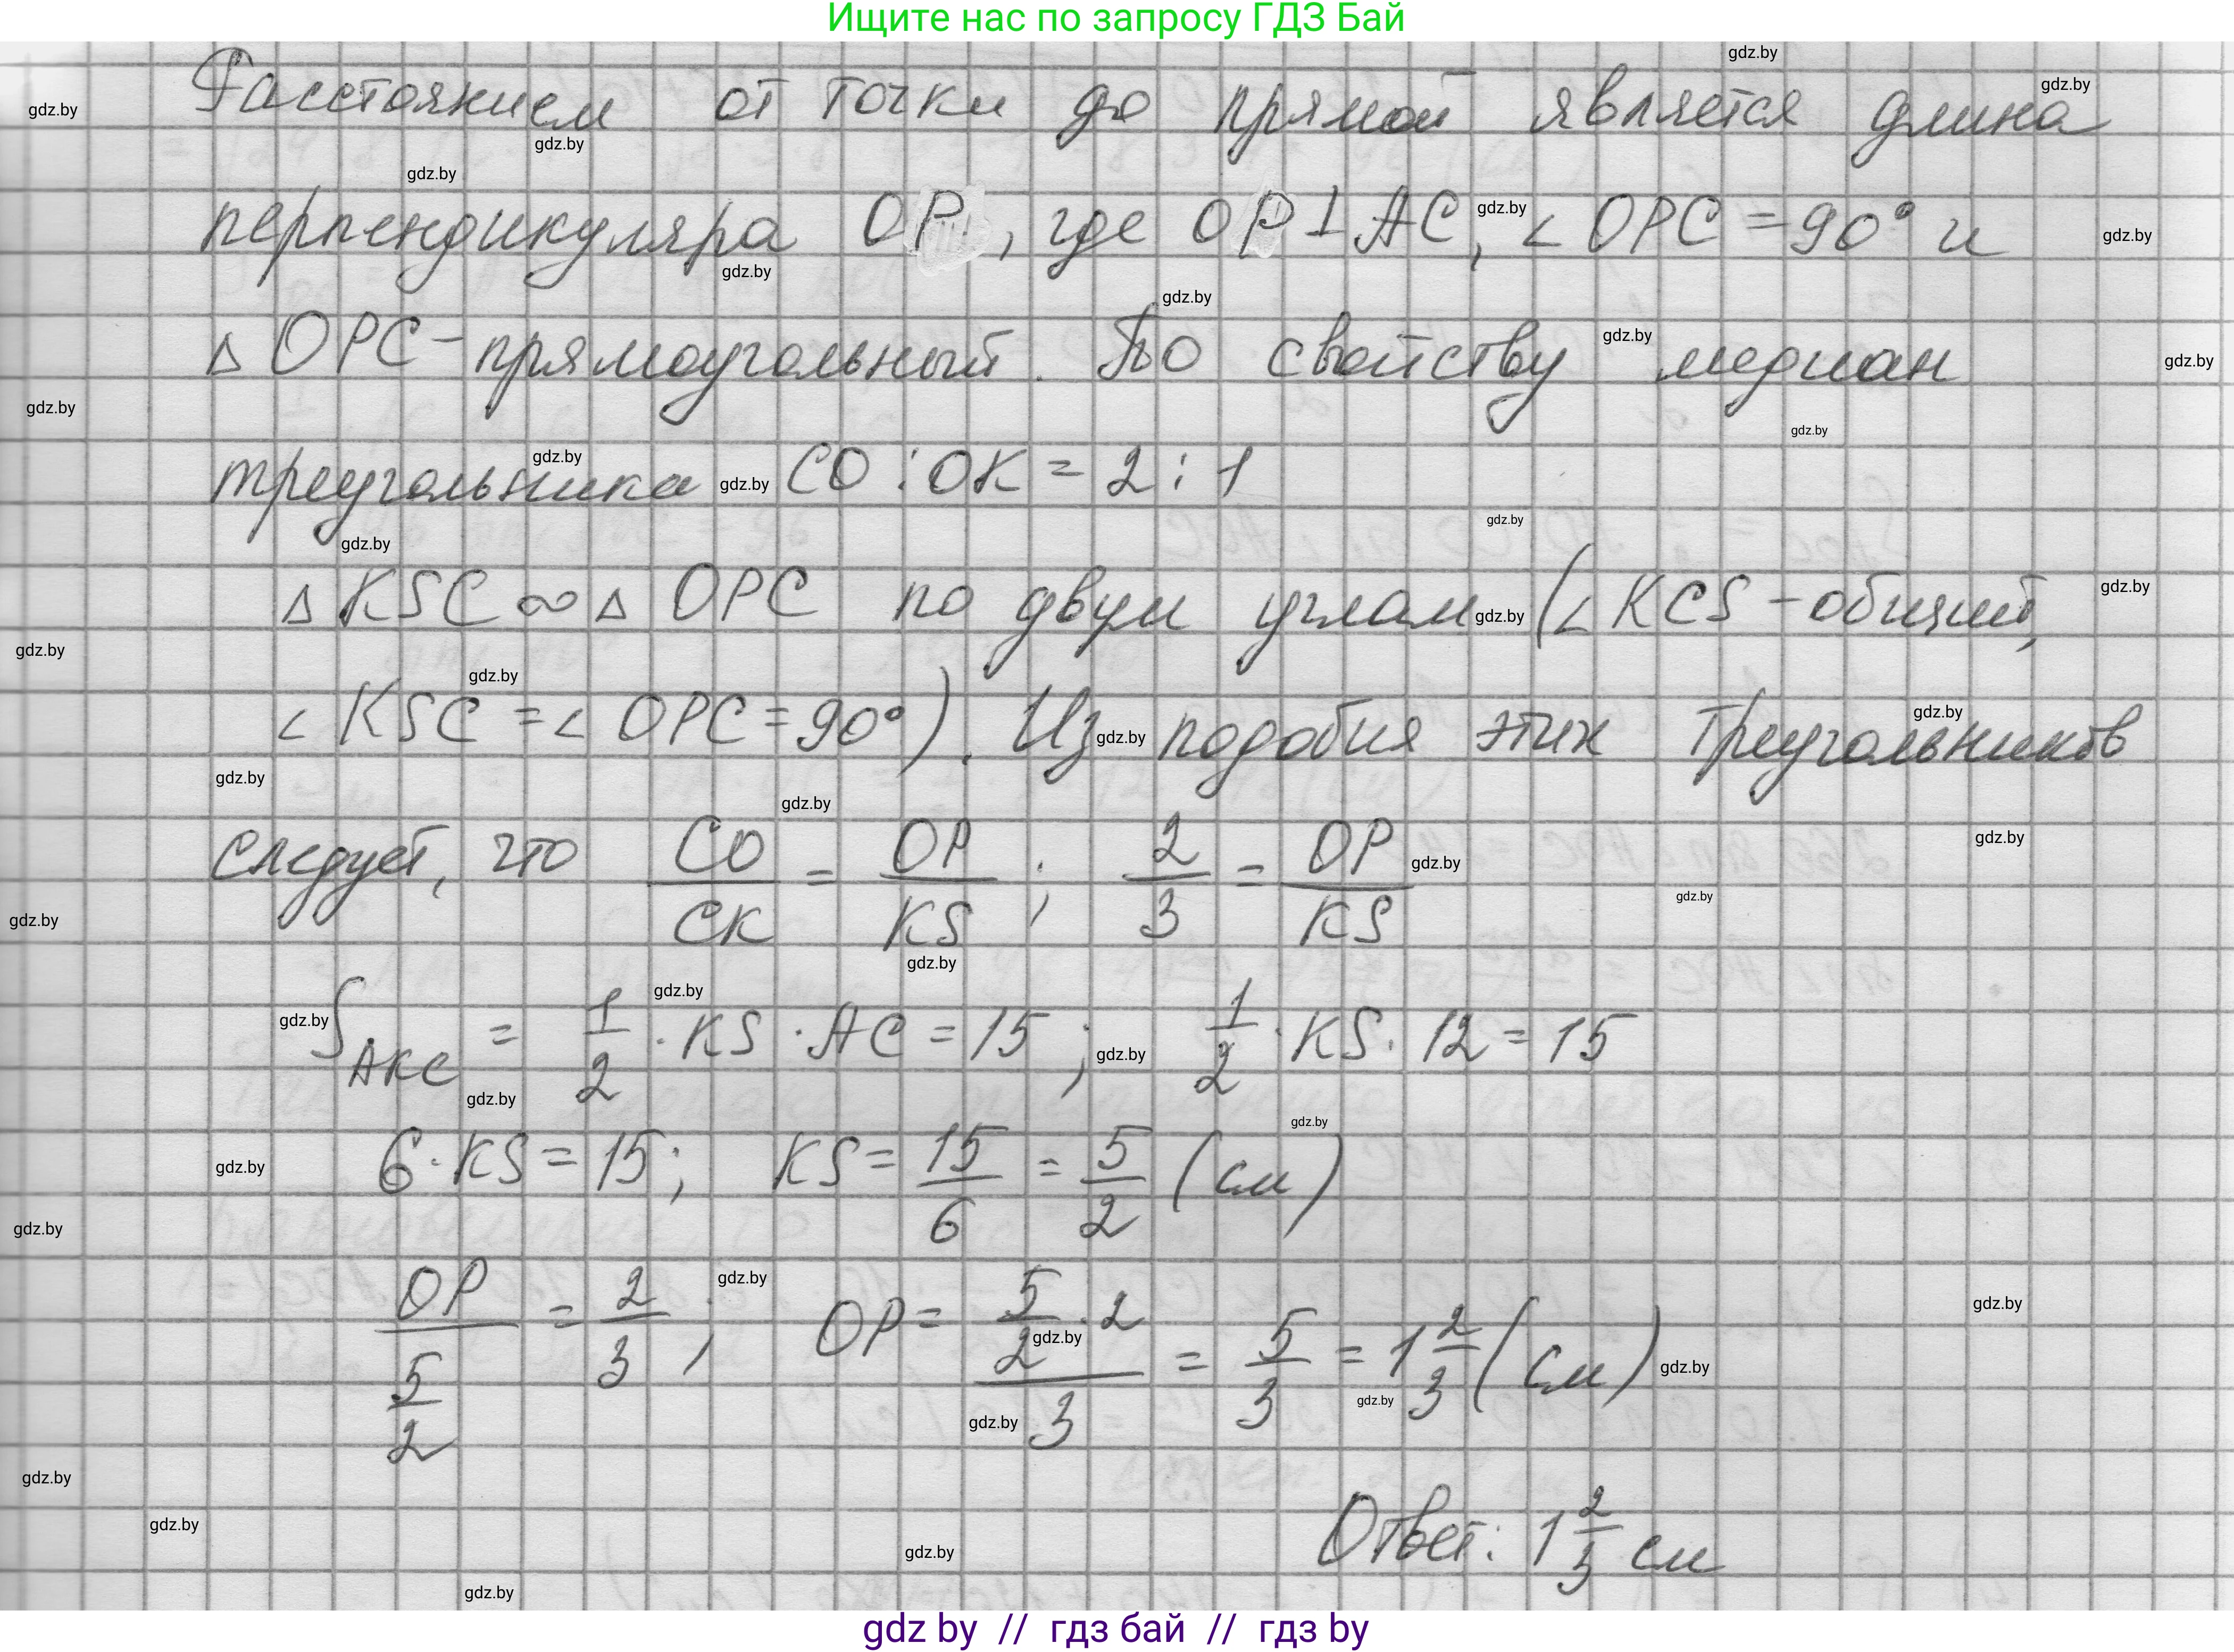 Ищите нас по запросу ГДЗ Бай
Расстоянием от точки до прямой является длина
перпендикуляра OP, где OP ⊥ AC, ∠ OPC = 90° и
△ OPC - прямоугольный. По свойству медиан
треугольника CO : OK = 2 : 1
△ KSC ∞ △ OPC по двум углам (∠ KCS - общий,
∠ KSC = ∠ OPC = 90°). Из подобия этих треугольников
следует, что CO/CK = OP/KS ; 2/3 = OP/KS
S AKC = 1/2 · KS · AC = 15 ; 1/2 · KS · 12 = 15
6 · KS = 15 ; KS = 15/6 = 5/2 (см)
OP/(5/2) = 2/3 ; OP = (5/2 · 2)/3 = 5/3 = 1 2/3 (см)
Ответ: 1 2/3 см
gdz by // гдз бай // гдз by